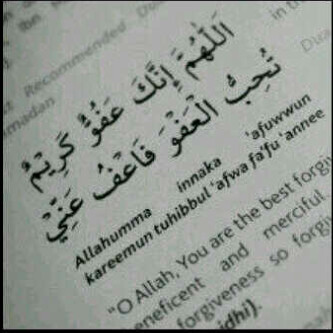 in t
st Recommended Du
amadan
اَللّٰهُمَّ إِنَّكَ عَفُوٌّ كَرِيْمٌ
تُحِبُّ الْعَفْوَ فَاعْفُ عَنِّيْ
Allahumma innaka 'afuwwun
kareemun tuhibbul 'afwa fa'fu 'annee
"O Allah, You are the best forgi
eneficent and merciful
forgiveness so forgi
idhi).